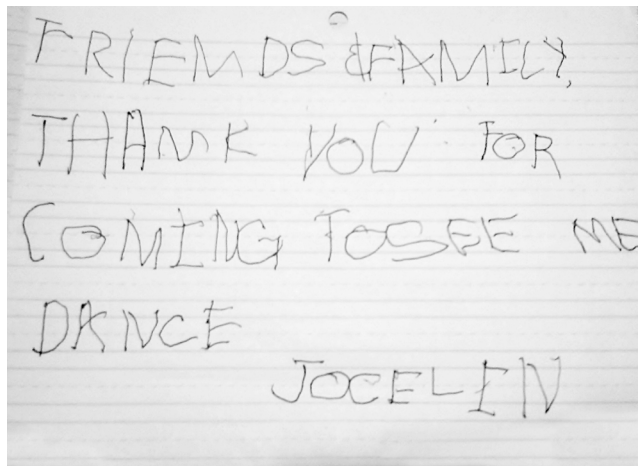 FRIENDS & FAMILY,
THANK YOU FOR
COMING TO SEE ME
DANCE
JOCELEN